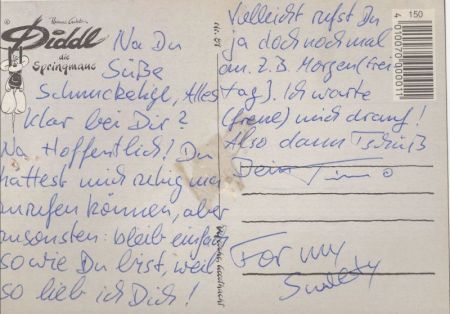 © Thomas Goletz
Diddl
die
Springmaus
Na Du
Süße
Schmuckeligl, Alles
Klar bei Dir?
Na Hoffentlich! Du
hättest mich ruhig mal
anrufen können, aber
ansonsten: bleib einfach
so wie Du bist, weil
so lieb ich Dich!
Vielleicht rufst Du
ja doch noch mal
an. Z.B. Morgen (Frei-
tag). Ich warte
(freue) mich drauf!
Also dann Tschüß
Dein Timo
For my
Sweety
150